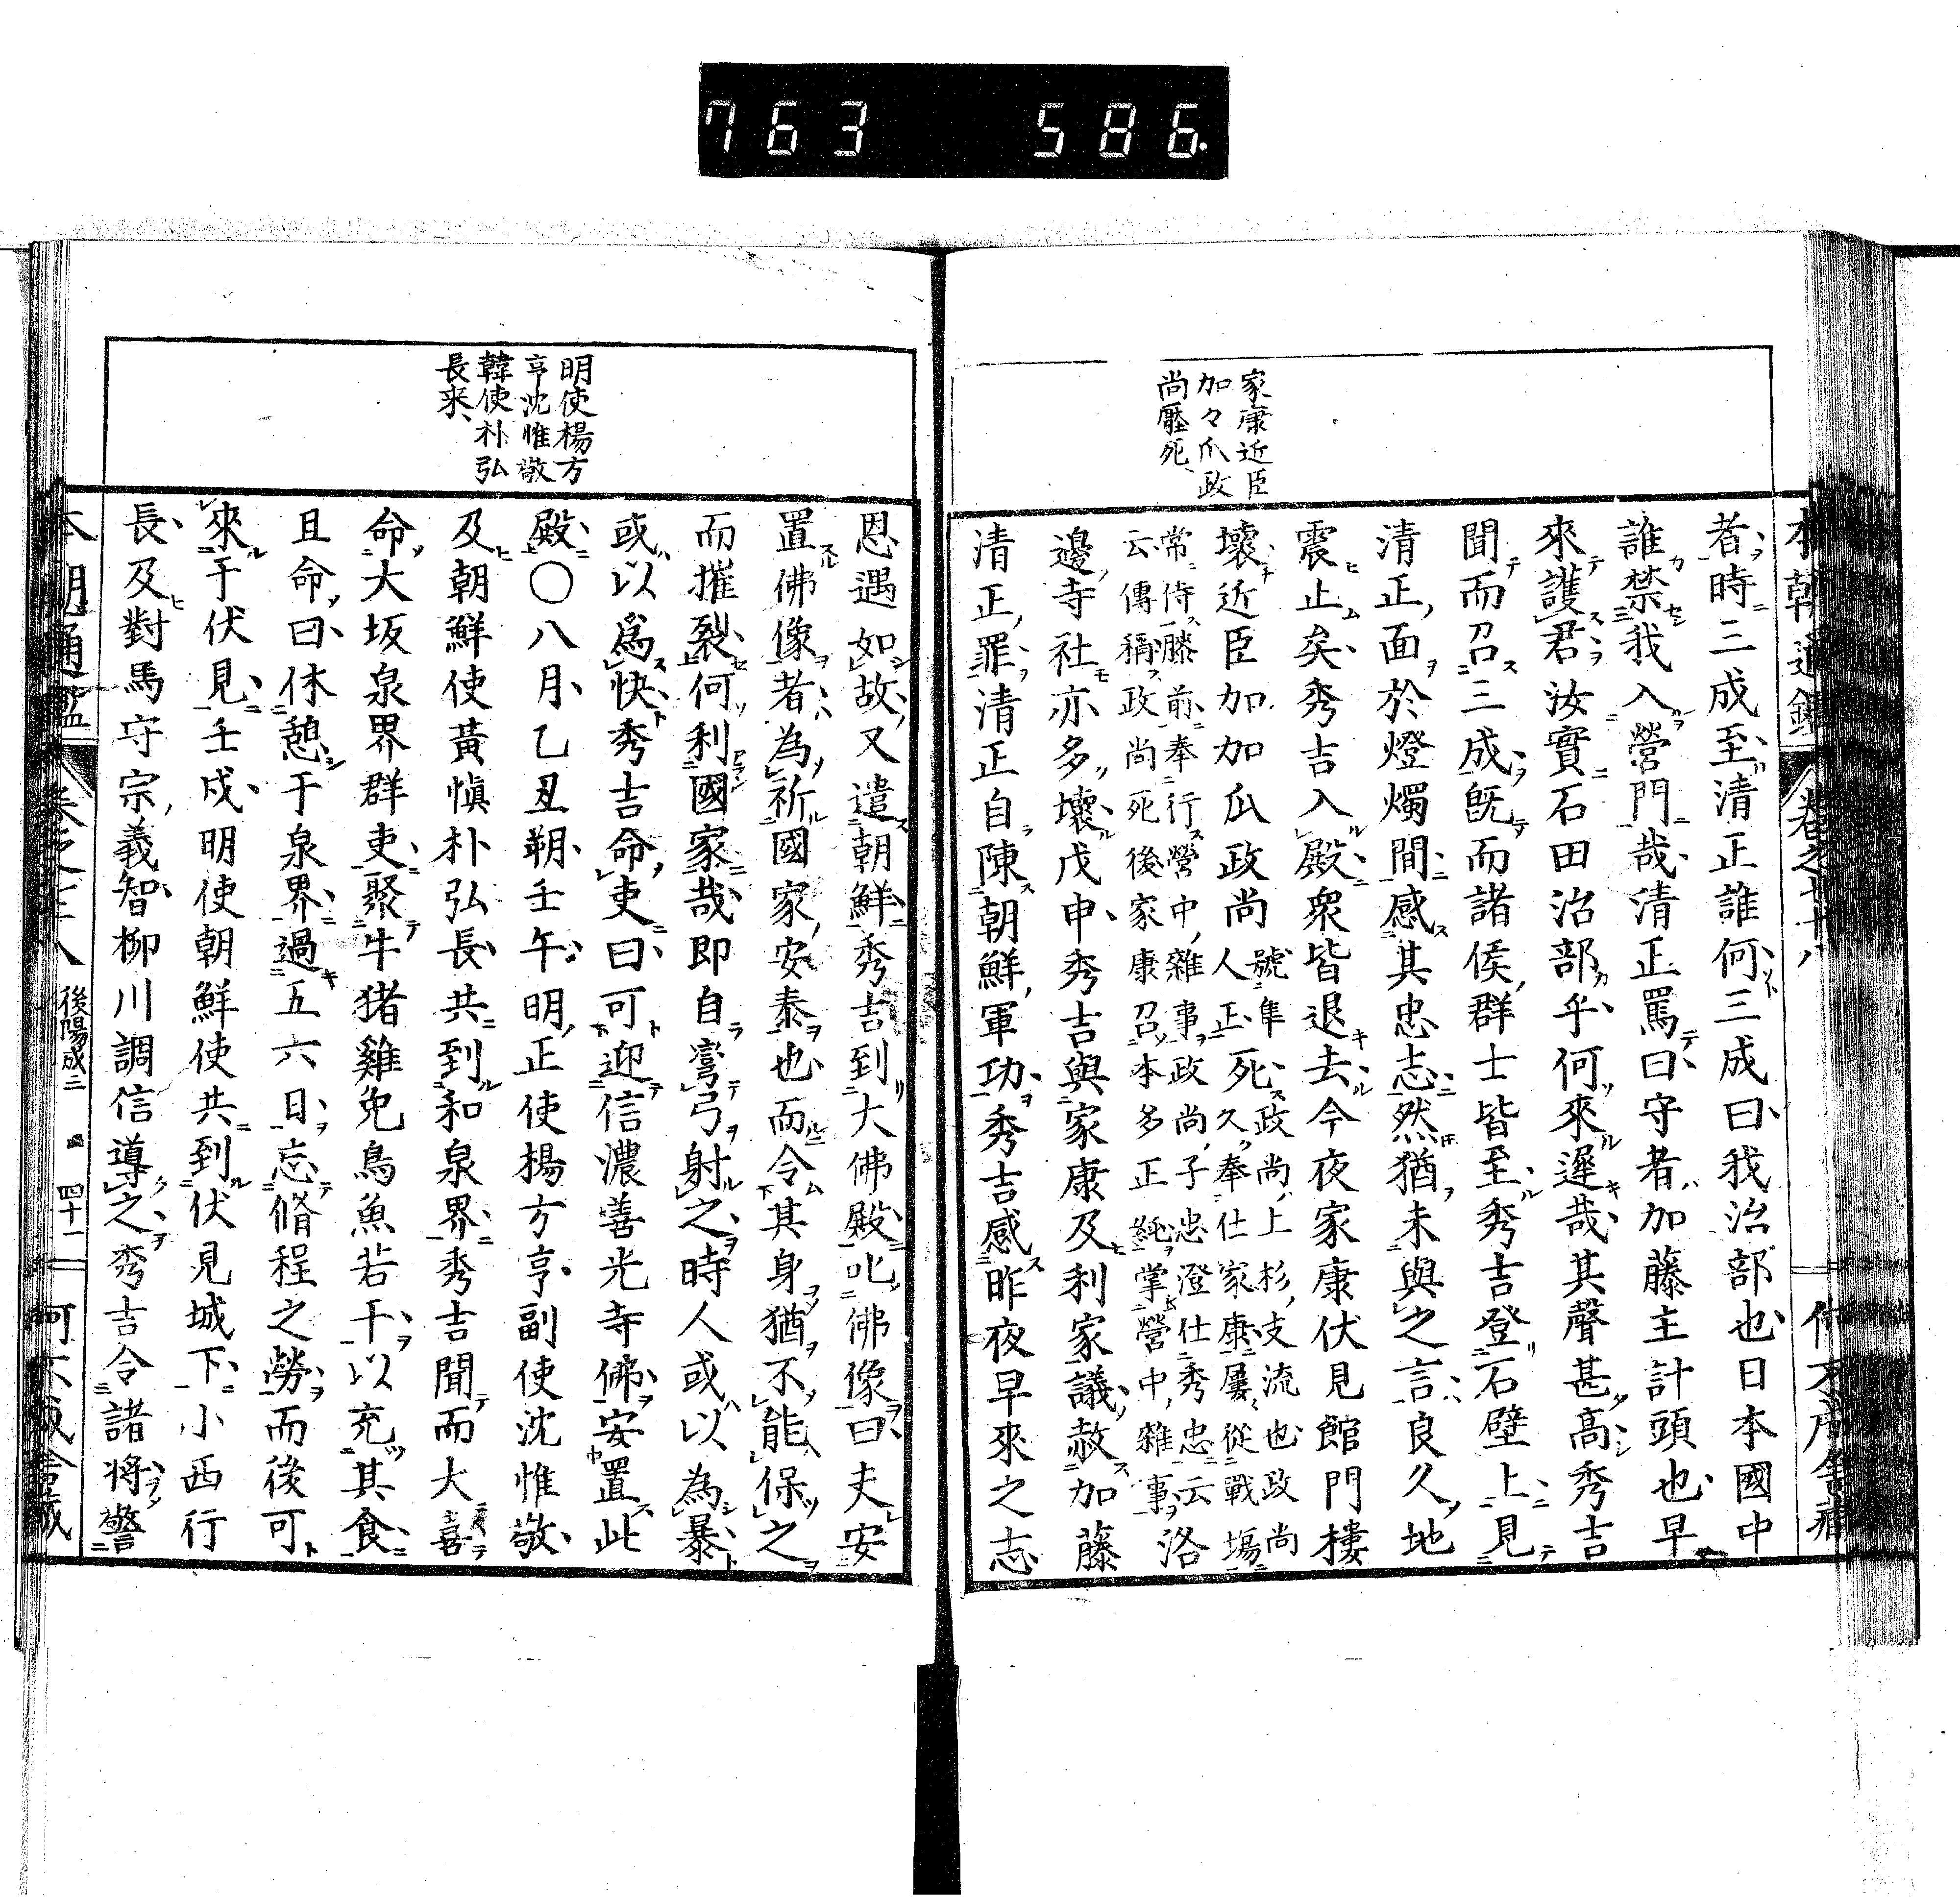 763 586.
家康近臣
加々爪政
尚壓死
者時三成至清正誰何三成曰我治部也日本國中
誰禁我入營門哉清正罵曰守者加藤主計頭也早
來護君汝實石田治部乎何來遲哉其聲甚高秀吉
聞而召三成既而諸侯群士皆至秀吉登石壁上見
清正面於燈燭間感其忠志然猶未與之言良久地
震止矣秀吉入殿衆皆退去今夜家康伏見館門樓
壞近臣加加爪政尚
號隼
人正
死
政尚上杉支流也政尚
久奉仕家康屢從戰場
常侍膝前奉行營中雜事政尚子忠澄仕秀忠云
云傳稱政尚死後家康召本多正純掌營中雜事
洛
邊寺社亦多壞戊申秀吉與家康及利家議赦加藤
清正罪清正自陳朝鮮軍功秀吉感昨夜早來之志
明使楊方
亨沈惟敬
韓使朴弘
長來
恩遇如故又遣朝鮮秀吉到大佛殿叱佛像曰夫安
置佛像者為祈國家安泰也而令其身猶不能保之
而摧裂何利國家哉即自彎弓射之時人或以為暴
或以爲快秀吉命吏曰可迎信濃善光寺佛安置此
殿○八月乙丑朔壬午明正使楊方亨副使沈惟敬
及朝鮮使黃愼朴弘長共到和泉界秀吉聞而大喜
命大坂泉界群吏聚牛猪雞兔鳥魚若干以充其食
且命曰休憩于泉界過五六日忘脩程之勞而後可
來于伏見壬戌明使朝鮮使共到伏見城下小西行
長及對馬守宗義智柳川調信導之秀吉令諸將警
本朝通鑑 後陽成三 四十一